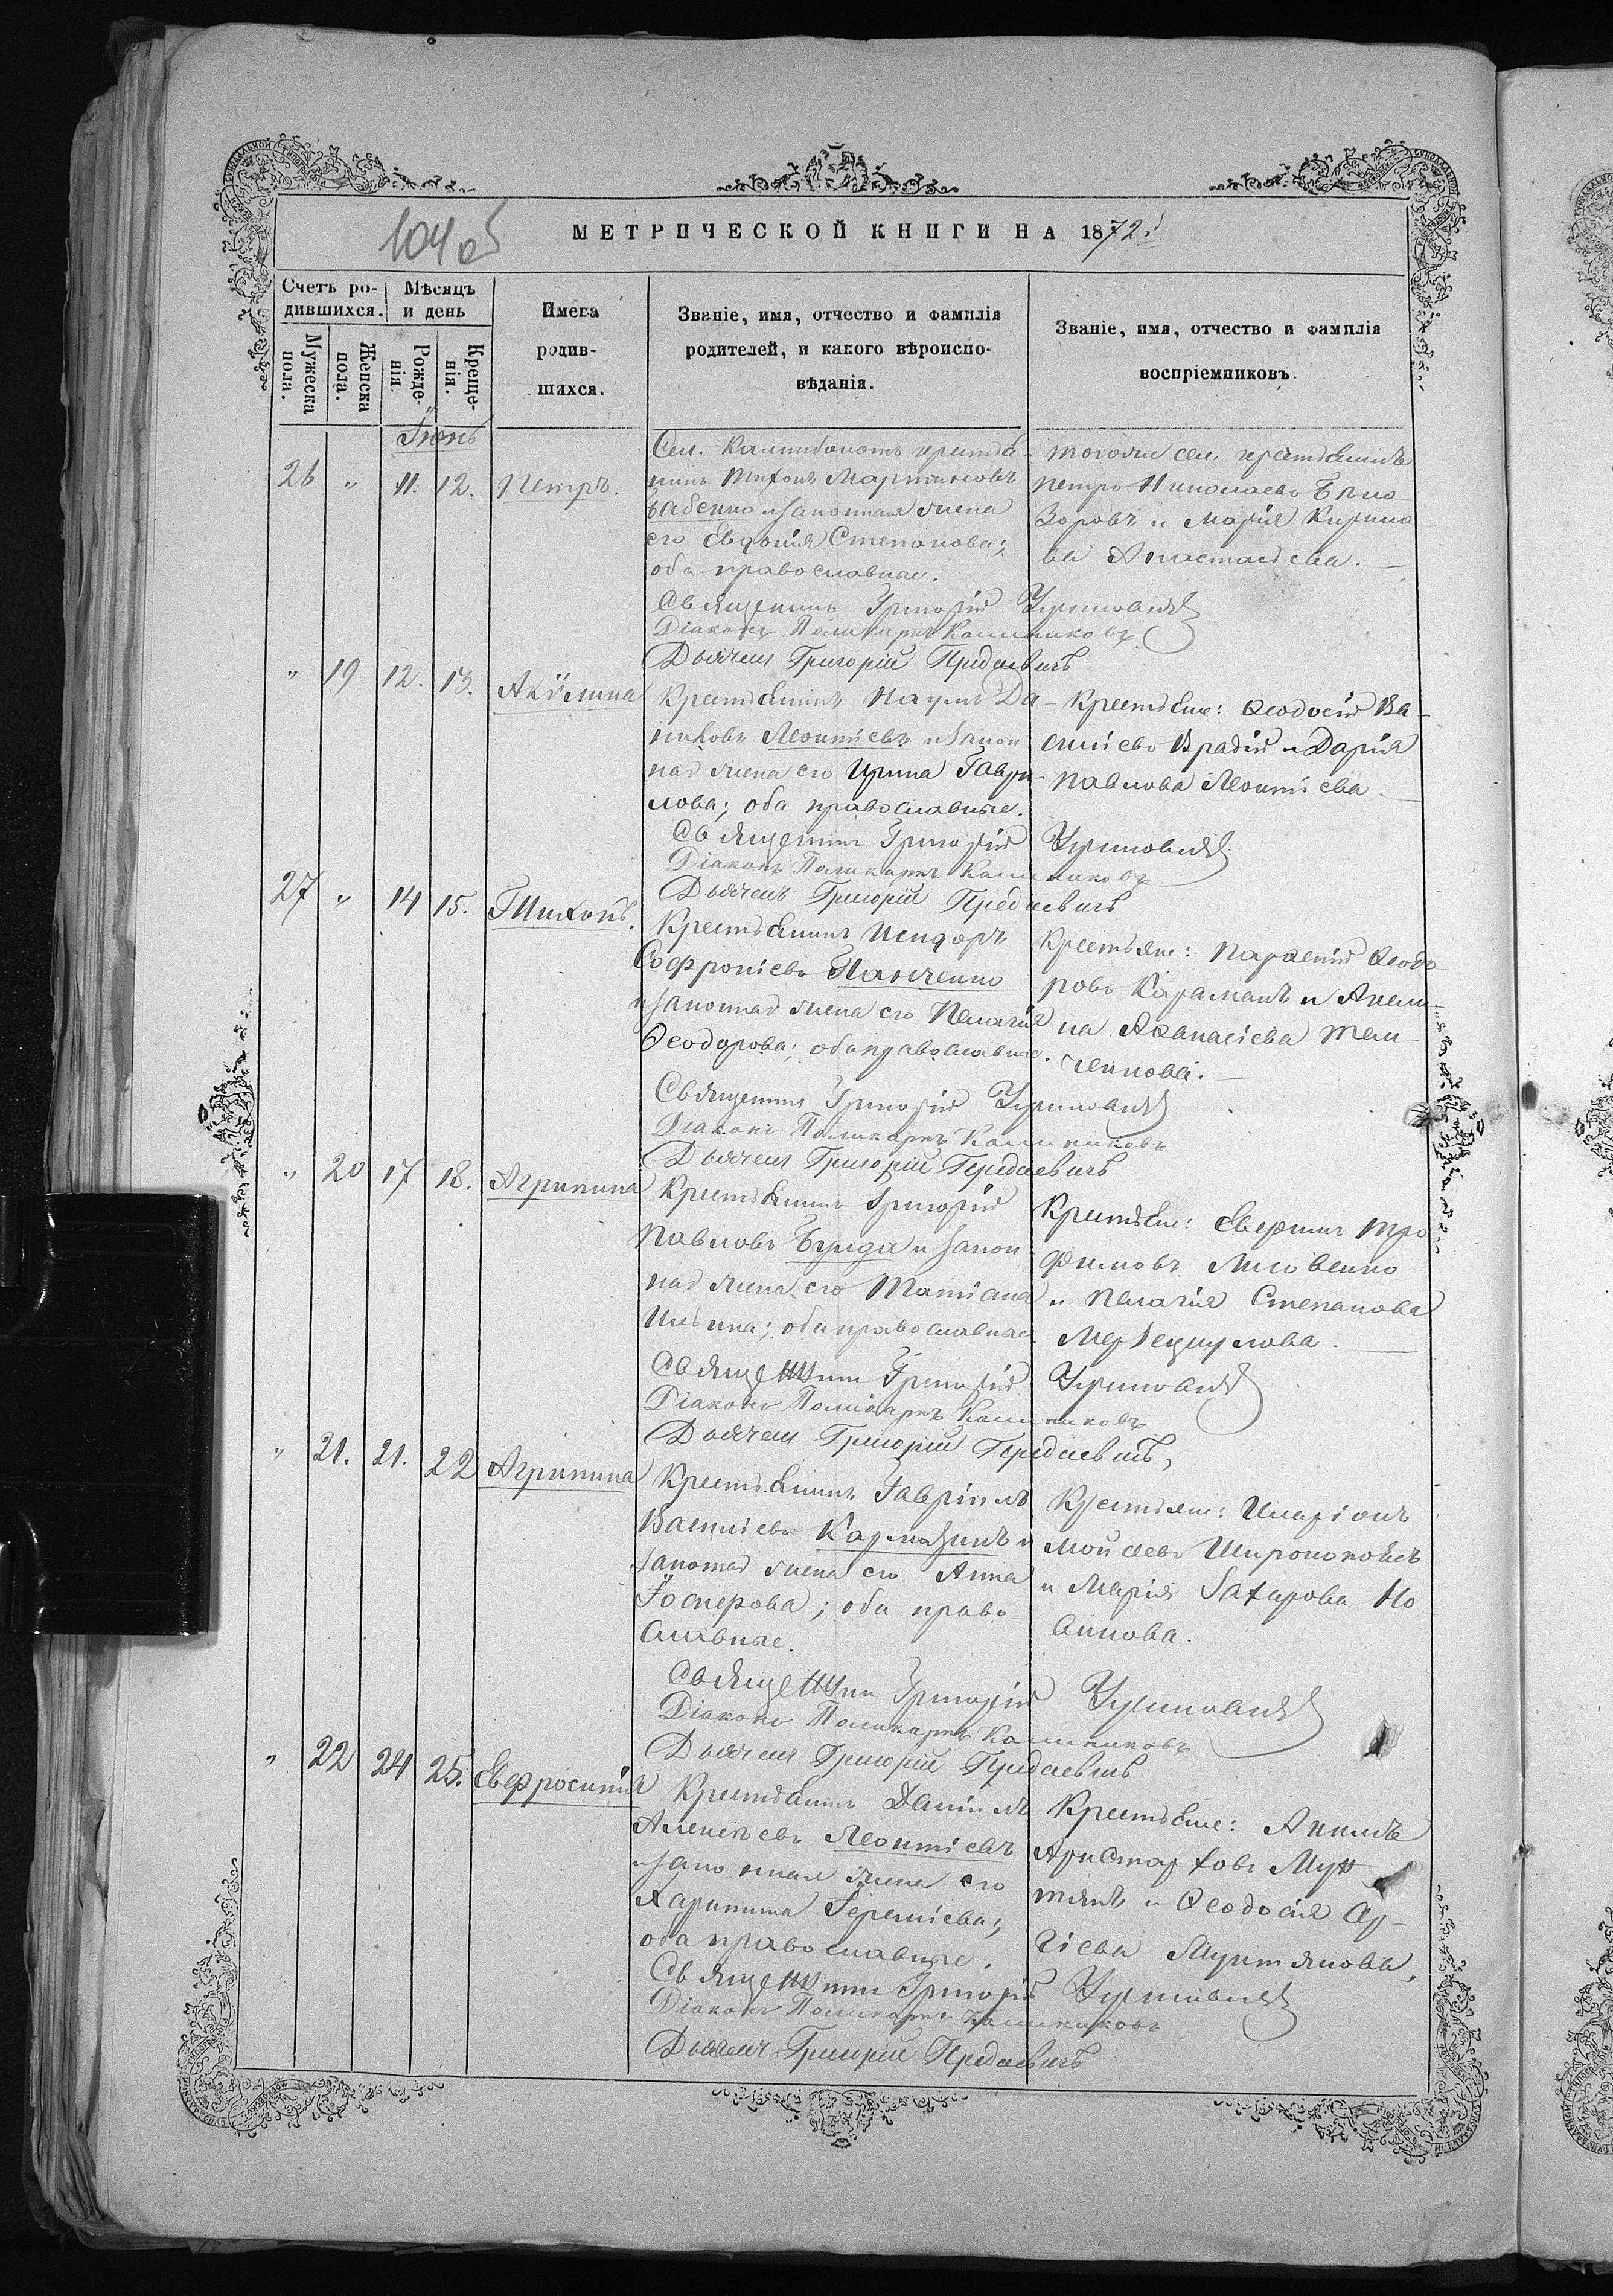 104 об
МЕТРИЧЕСКОЙ КНИГИ НА 1872.
Счетъ ро-
дившихся.
Мѣсяцъ
и день
Имена
родив-
шихся.
Званіе, имя, отчество и фамилія
родителей, и какого вѣроиспо-
вѣданія.
Званіе, имя, отчество и фамилія
воспріемниковъ.
Мужеска
пола.
Женска
пола.
Рожде-
нія.
Креще-
нія.
Іюнь
26 " 11. 12. Петръ.
Сел. крестья-
нинъ Тихонъ Мартиновъ
Бабенко и законная жена
его Евдокія Степанова;
оба православные.
тогоже сел. крестьянинъ
Петръ Николаевъ Бѣло-
зоровъ и Марія Кирило
ва Анастасьева.
Священникъ Григорій
Діаконъ Поликарпъ Калинниковъ
Дьячекъ Григорій
" 19 12. 13. Акѵлина
Крестьянинъ Наумъ Да-
ниловъ Леонтіевъ и закон
ная жена его Ирина Гаври-
лова; оба православные.
Крестьяне: Ѳеодосій Ва-
силіевъ Врадій и Дарія
Павлова Леонтіева.
Священникъ Григорій
Діаконъ Поликарпъ Калинниковъ
Дьячекъ Григорій
27 " 14 15. Тихонъ.
Крестьянинъ Исидоръ
Софроніевъ Панченко
и законная жена его Пелагія
Ѳеодорова; оба православные.
Крестьяне: Парѳеній Ѳеодо-
ровъ Караманъ и Акили-
на Аѳанасіева
Священникъ Григорій
Діаконъ Поликарпъ Калинниковъ
Дьячекъ Григорій
" 20 17 18. Агрипина
Крестьянинъ Григорій
Павловъ Бурда и закон
ная жена его Татіана
Ильина; оба православные
Крестьяне: Тро
фимовъ Лисовенко
и Пелагія Степанова
Священникъ Григорій
Діаконъ Поликарпъ Калинниковъ
Дьячекъ Григорій
" 21. 21. 22 Агрипина
Крестьянинъ Гавріилъ
Василіевъ Кармазинъ и
законная жена его Анна
Іосифова; оба право
славные.
Крестьяне: Иларіонъ
Мойсеевъ Широкопоясъ
и Марія Захарова
Священникъ Григорій
Діаконъ Поликарпъ Калинниковъ
Дьячекъ Григорій
" 22 24 25. Евфросинія
Крестьянинъ Даніилъ
Алексѣевъ Леонтіевъ
и законная жена его
Харитина Іереміева;
оба православные.
Крестьяне:
Аристарховъ Мун
тянъ и Ѳеодосія Сер-
гіева Мунтянова.
Священникъ Григорій
Діаконъ Поликарпъ Калинниковъ
Дьячекъ Григорій